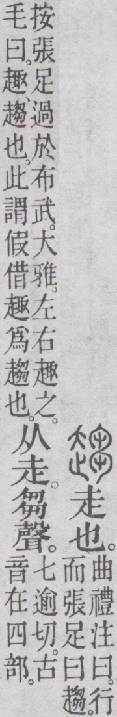 趨走也。
曲禮注曰。行
而張足曰趨。
按張足過於布武。大雅。左右趣之。
毛曰。趣趨也。此謂假借趣爲趨也。
从走。芻聲。
七逾切。古
音在四部。